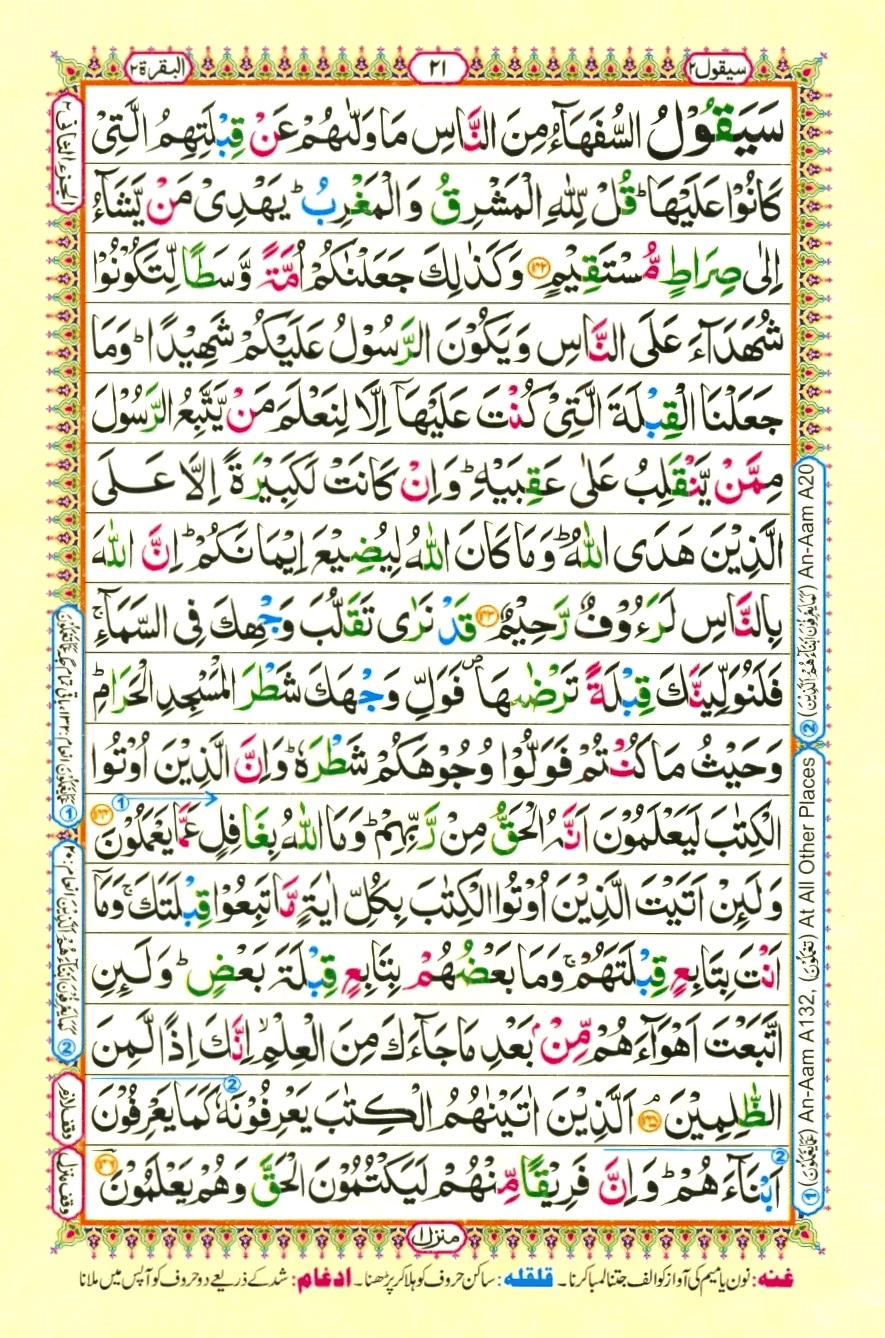 سيقول٢
٢١
البقرة٢
الجزء الثانی ٢
سَيَقُوْلُ السُّفَهَآءُ مِنَ النَّاسِ مَا وَلّٰىهُمْ عَنْ قِبْلَتِهِمُ الَّتِیْ
كَانُوْا عَلَيْهَا ؕ قُلْ لِّلّٰهِ الْمَشْرِقُ وَالْمَغْرِبُ ؕ يَهْدِیْ مَنْ يَّشَآءُ
اِلٰی صِرَاطٍ مُّسْتَقِيْمٍ ۝۱۴۲ وَكَذٰلِكَ جَعَلْنٰكُمْ اُمَّةً وَّسَطًا لِّتَكُوْنُوْا
شُهَدَآءَ عَلَی النَّاسِ وَيَكُوْنَ الرَّسُوْلُ عَلَيْكُمْ شَهِيْدًا ؕ وَمَا
جَعَلْنَا الْقِبْلَةَ الَّتِیْ كُنْتَ عَلَيْهَآ اِلَّا لِنَعْلَمَ مَنْ يَّتَّبِعُ الرَّسُوْلَ
مِمَّنْ يَّنْقَلِبُ عَلٰی عَقِبَيْهِ ؕ وَاِنْ كَانَتْ لَكَبِيْرَةً اِلَّا عَلَی
الَّذِيْنَ هَدَی اللّٰهُ ؕ وَمَا كَانَ اللّٰهُ لِيُضِيْعَ اِيْمَانَكُمْ ؕ اِنَّ اللّٰهَ
بِالنَّاسِ لَرَءُوْفٌ رَّحِيْمٌ ۝۱۴۳ قَدْ نَرٰی تَقَلُّبَ وَجْهِكَ فِی السَّمَآءِ ۚ
فَلَنُوَلِّيَنَّكَ قِبْلَةً تَرْضٰىهَا ۪ فَوَلِّ وَجْهَكَ شَطْرَ الْمَسْجِدِ الْحَرَامِ ؕ
وَحَيْثُ مَا كُنْتُمْ فَوَلُّوْا وُجُوْهَكُمْ شَطْرَهٗ ؕ وَاِنَّ الَّذِيْنَ اُوْتُوا
الْكِتٰبَ لَيَعْلَمُوْنَ اَنَّهُ الْحَقُّ مِنْ رَّبِّهِمْ ؕ وَمَا اللّٰهُ بِغَافِلٍ عَمَّا يَعْمَلُوْنَ ۝۱۴۴
وَلَئِنْ اَتَيْتَ الَّذِيْنَ اُوْتُوا الْكِتٰبَ بِكُلِّ اٰيَةٍ مَّا تَبِعُوْا قِبْلَتَكَ ۚ وَمَآ
اَنْتَ بِتَابِعٍ قِبْلَتَهُمْ ۚ وَمَا بَعْضُهُمْ بِتَابِعٍ قِبْلَةَ بَعْضٍ ؕ وَلَئِنِ
اتَّبَعْتَ اَهْوَآءَهُمْ مِّنْۢ بَعْدِ مَا جَآءَكَ مِنَ الْعِلْمِ ۙ اِنَّكَ اِذًا لَّمِنَ
الظّٰلِمِيْنَ ۝۱۴۵ ۘ اَلَّذِيْنَ اٰتَيْنٰهُمُ الْكِتٰبَ يَعْرِفُوْنَهٗ كَمَا يَعْرِفُوْنَ
اَبْنَآءَهُمْ ؕ وَاِنَّ فَرِيْقًا مِّنْهُمْ لَيَكْتُمُوْنَ الْحَقَّ وَهُمْ يَعْلَمُوْنَ ۝۱۴۶
② An-Aam A20
① An-Aam A132, At All Other Places
وقف لازم
وقف منزل
منزل ۱
غنه: نون یا میم کی آواز کو الف جتنا لمبا کرنا۔ قلقله: ساکن حروف کو ہلا کر پڑھنا۔ ادغام: شد کے ذریعے دو حروف کو آپس میں ملانا